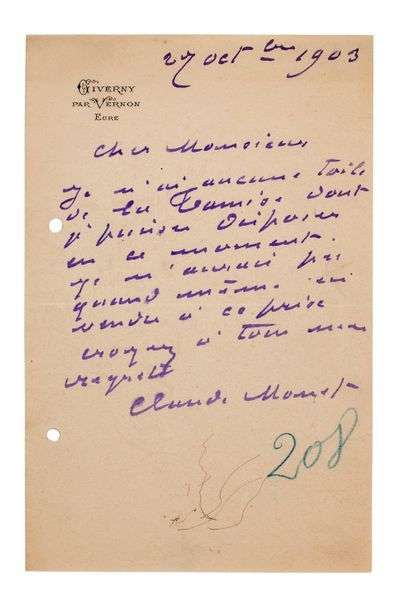 27 oct bre 1903
GIVERNY
PAR VERNON
EURE
Cher Monsieur
je n'ai aucune toile
de la Tamise dont
je puisse disposer
en ce moment.
je n'aurai pu
quand même
vendu à ce prix
croyez à tous mes
regrets
Claude Monet
208